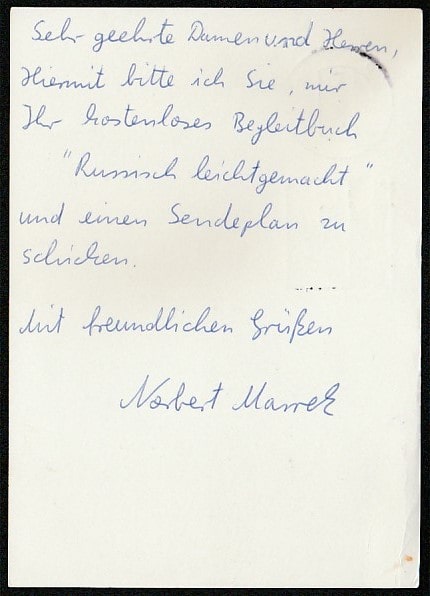 Sehr geehrte Damen und Herren,
Hiermit bitte ich Sie, mir
Ihr kostenloses Begleitbuch
"Russisch leichtgemacht"
und einen Sendeplan zu
schicken.
Mit freundlichen Grüßen
Norbert